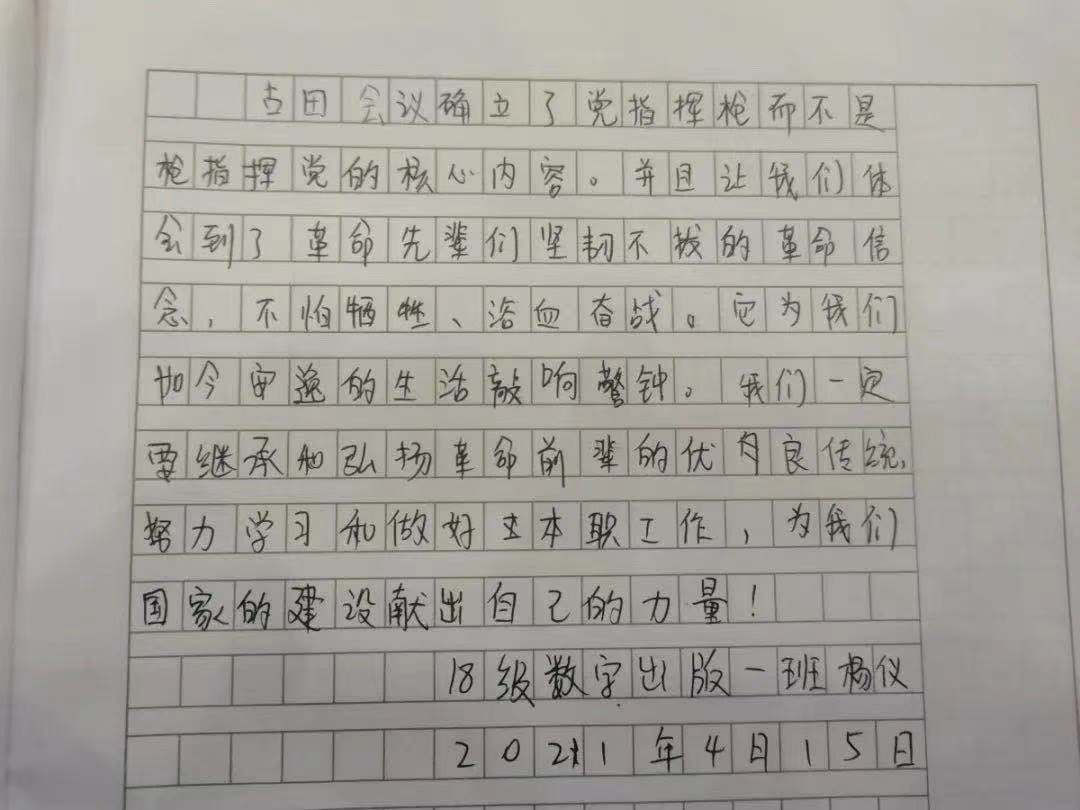 古田会议确立了党指挥枪而不是
枪指挥党的核心内容。并且让我们体
会到了革命先辈们坚韧不拔的革命信
念，不怕牺牲、浴血奋战。它为我们
如今安逸的生活敲响警钟。我们一定
要继承和弘扬革命前辈的优良传统，
努力学习和做好立本职工作，为我们
国家的建设献出自己的力量！
18级数字出版一班杨仪
2021年4月15日